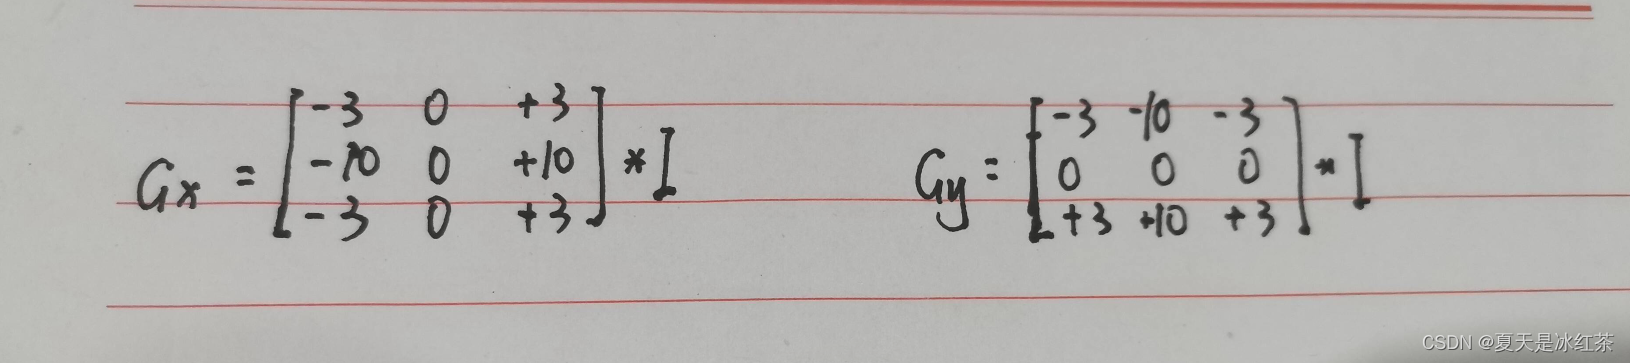 Gx = [ -3 0 +3
-10 0 +10
-3 0 +3 ] * I
Gy = [ -3 -10 -3
0 0 0
+3 +10 +3 ] * I
CSDN @夏天是冰红茶